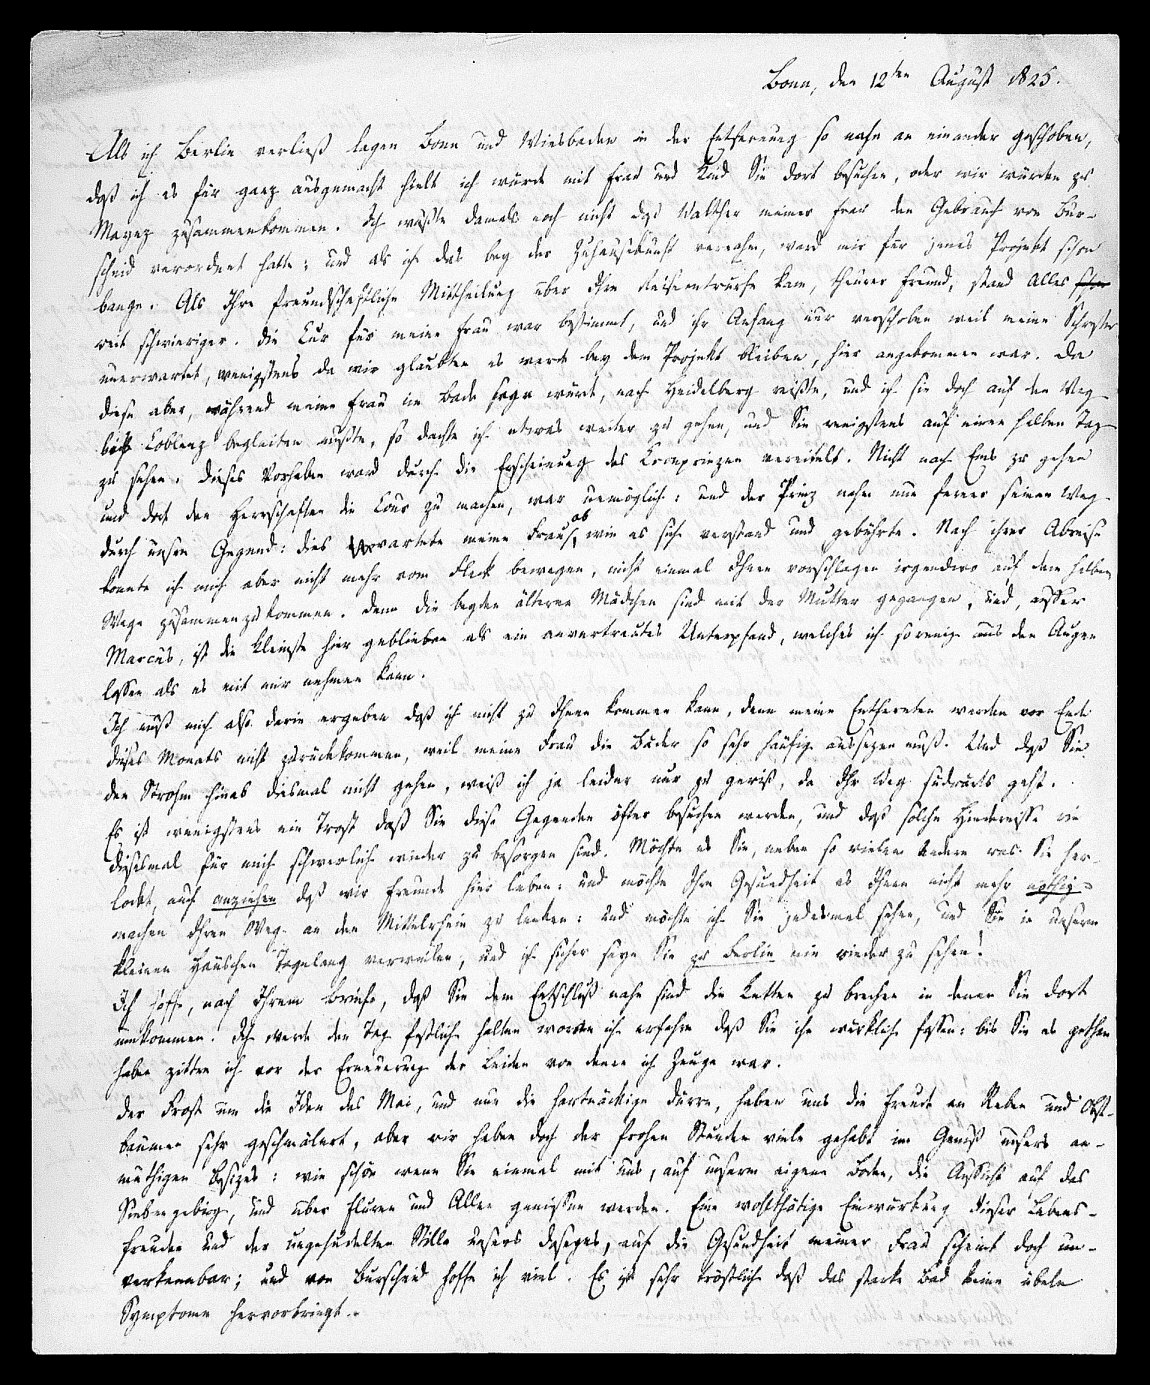 Bonn, den 12ten August 1825.
Als ich Berlin verließ lagen Bonn und Wiesbaden in der Entfernung so nahe an einander geschoben,
daß ich es für ganz ausgemacht hielt ich würde mit Frau und Kind Sie dort besuchen, oder wir würden zu
Maynz zusammenkommen. Ich wußte damals noch nicht daß Walther meiner Frau den Gebrauch von Bur-
scheid verordnet hatte: und als ich das bey der Zuhausekunft vernahm, ward mir für jenes Projekt schon
bange. Als Ihre freundschaftliche Mittheilung über Ihre Reise kam, theurer Freund, stand alles
weit schwieriger. Die Cur für meine Frau war bestimmt, und ihr Anfang nur verschoben weil meine Schwester
unerwartet, wenigstens da wir glaubten es werde bey dem Projekt bleiben, hier angekommen war. Da
diese aber, während meine Frau im Bade seyn würde, nach Heidelberg reißte, und ich sie doch auf den Weg
bis Coblenz begleiten mußte, so dachte ich etwas weiter zu gehen, und Sie wenigstens auf einen halben Tag
zu sehen. Dieses Vorhaben ward durch die Erscheinung des Cronprinzen vereitelt. Nicht nach Ems zu gehen
und dort den Herrschaften die Cour zu machen, war unmöglich: und der Prinz nahm nun ferner seinen Weg
durch unsre Gegend: dies wartete meine Frau ab, wie es sich verstand und gebührte. Nach ihrer Abreise
konnte ich mich aber nicht mehr vom Fleck bewegen, nicht einmal Ihnen vorschlagen irgendwo auf dem halben
Wege zusammenzukommen. Denn die beyden älteren Mädchen sind mit der Mutter gegangen, und, außer
Marcus, ist die Kleinste hier geblieben als ein anvertrautes Unterpfand, welches ich so wenig aus den Augen
lassen als es mit mir nehmen kann.
Ich muß mich also darin ergeben daß ich nicht zu Ihnen kommen kann, denn meine Entfernten werden vor Ende
dieses Monats nicht zurückkommen, weil meine Frau die Bäder so sehr häufig aussezen muß. Und daß Sie
den Strohm hinab diesmal nicht gehen, weiß ich ja leider nur zu gewiß, da Ihr Weg südwärts geht.
Es ist wenigstens ein Trost daß Sie diese Gegenden öfter besuchen werden, und daß solche Hindernisse wie
diesesmal für mich schwerlich wieder zu besorgen sind. Möchte es Sie, neben so vielem Andern was Sie her-
lockt, auch anziehen daß wir Freunde hier leben: und möchte Ihre Gesundheit es Ihnen nicht mehr nöthig
machen Ihren Weg an den Mittelrhein zu lenken: und möchte ich Sie jedesmal sehen, und Sie in unserm
kleinen Häuschen Tagelang verweilen, und ich sicher seyn Sie zu Berlin nie wieder zu sehen!
Ich hoffe, nach Ihrem Briefe, daß Sie dem Entschluß nahe sind die Ketten zu brechen in denen Sie dort
umkommen. Ich werde den Tag festlich halten woran ich erfahre daß Sie ihn wirklich fassen: bis Sie es gethan
haben zittre ich vor der Erneuerung der Leiden von denen ich Zeuge war.
Der Frost um die Iden des Mai, und nun die hartnäckige Dürre, haben uns die Freude an Reben und Obst-
bäumen sehr geschmälert, aber wir haben doch der frohen Stunden viele gehabt im Genuß unsers an-
muthigen Besizes: wie schön wenn Sie einmal mit uns, auf unserm eignen Boden, die Aussicht auf das
Siebengebirg, und über Fluren und Allee genießen werden. Eine wohlthätige Einwürkung dieser Lebens-
freuden und der ungehudelten Stille unsers Daseyns, auf die Gesundheit meiner Frau scheint doch un-
verkennbar; und von Burscheid hoffe ich viel. Es ist sehr tröstlich daß das starke Bad keine übeln
Symptome hervorbringt.